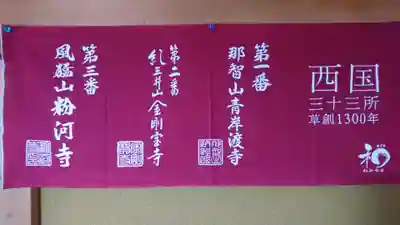 西国
三十三所
草創1300年
和
第一番
那智山青岸渡寺
第二番
紀三井山金剛宝寺
第三番
風猛山粉河寺